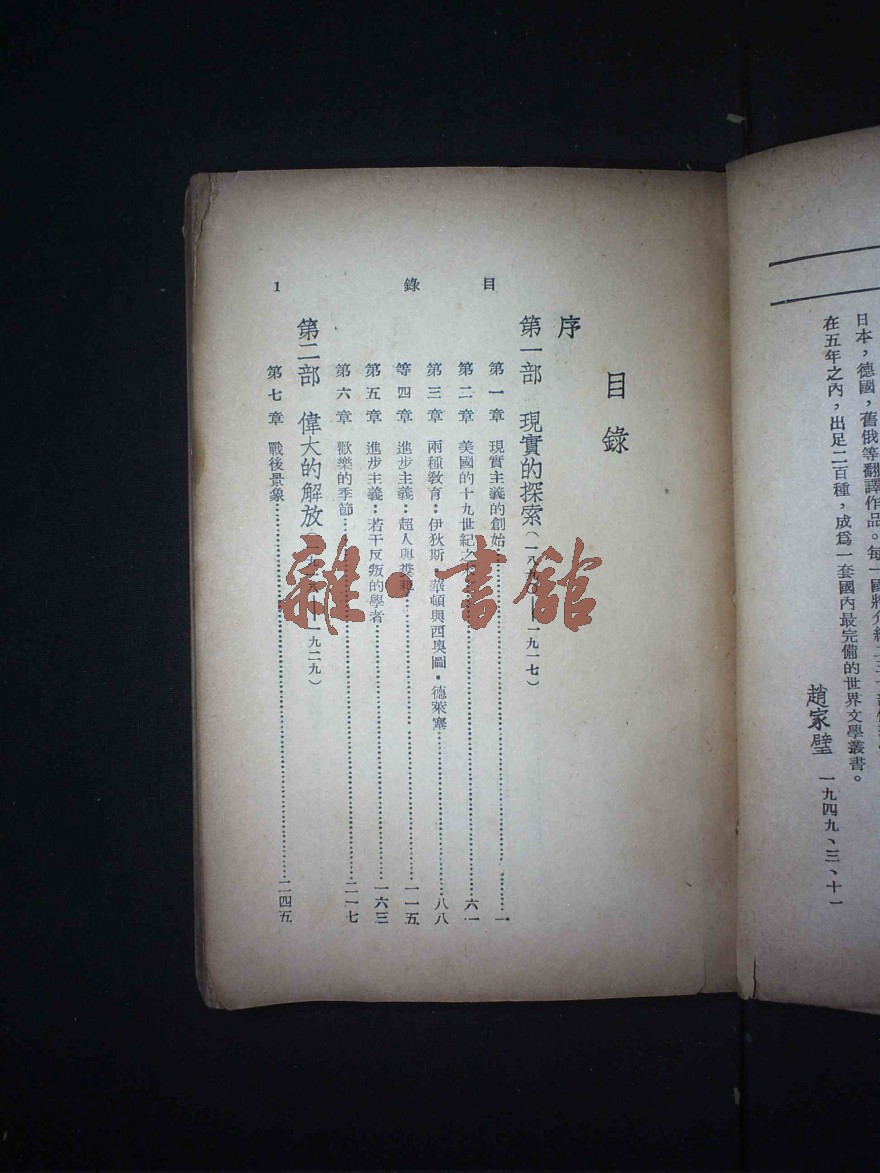 日本，德國，舊俄等翻譯作品。每一國將介紹二三十部
在五年之內，出足二百種，成爲一套國內最完備的世界文學叢書。
趙家璧 一九四九、三、十一
目錄 1
目錄
序
第一部 現實的探索（一八九〇——一九一七）
第一章 現實主義的創始……一
第二章 美國的十九世紀之末……六一
第三章 兩種敎育：伊狄斯・華頓與西奧圖・德萊塞……八八
等四章 進步主義：超人與……一一五
第五章 進步主義：若干反叛的學者……一六三
第六章 歡樂的季節……二一七
第二部 偉大的解放（一九一八——一九二九）
第七章 戰後景象……二四五
雜・書館